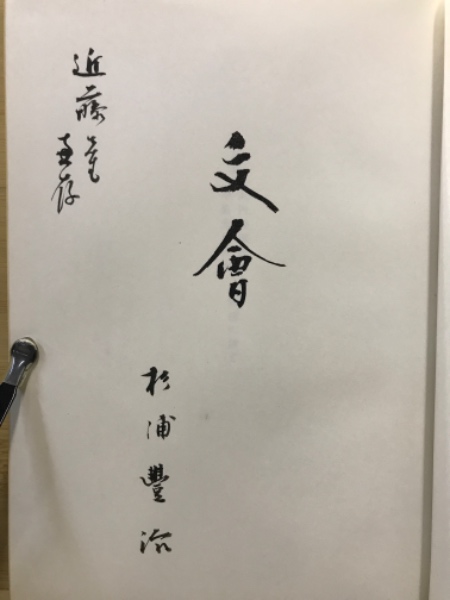 文會
杉浦豐治
近藤
惠存